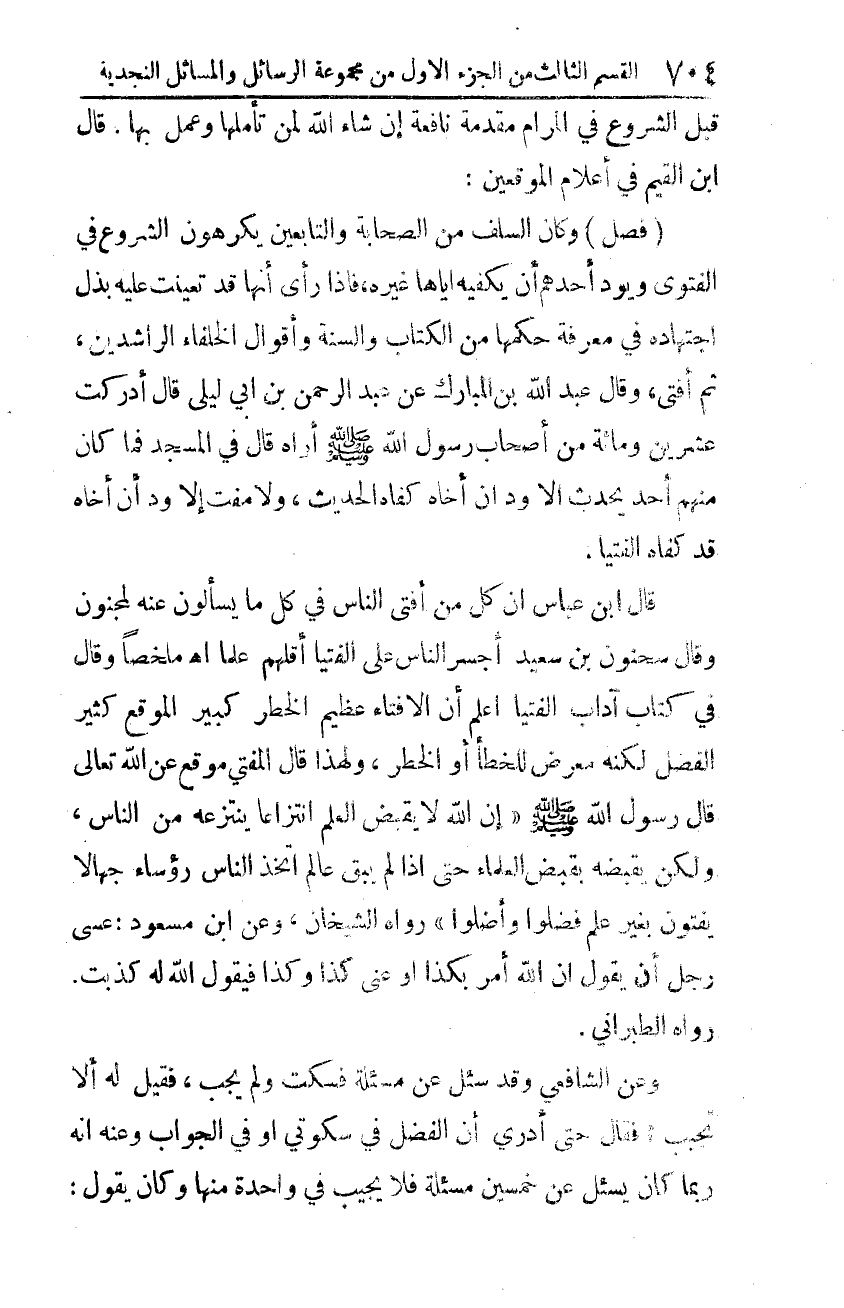 ٧٠٤ القسم الثالث من الجزء الاول من مجموعة الرسائل والمسائل النجدية
قبل الشروع في المرام مقدمة نافعة إن شاء الله لمن تأملها وعمل بها . قال
ابن القيم في أعلام الموقعين :
( فصل ) وكان السلف من الصحابة والتابعين يكرهون الشروع في
الفتوى ويود أحدهم أن يكفيه اياها غيره، فاذا رأى أنها قد تعينت عليه بذل
اجتهاده في معرفة حكمها من الكتاب والسنة وأقوال الخلفاء الراشدين ،
ثم أفتى، وقال عبد الله بن المبارك عن عبد الرحمن بن ابي ليلى قال أدركت
عشرين ومائة من أصحاب رسول الله ﷺ أراه قال في المسجد فما كان
منهم أحد يحدث الا ود ان أخاه كفاه الحديث ، ولا مفت إلا ود أن أخاه
قد كفاه الفتيا .
قال ابن عباس ان كل من أفتى الناس في كل ما يسألون عنه لمجنون
وقال سحنون بن سعيد أجسر الناس على الفتيا أقلهم علما اه ملخصاً وقال
في كتاب آداب الفتيا اعلم أن الافتاء عظيم الخطر كبير الموقع كثير
الفضل لكنه معرض للخطأ أو الخطر ، ولهذا قال المفتي موقع عن الله تعالى
قال رسول الله ﷺ « إن الله لا يقبض العلم انتزاعا ينتزعه من الناس ،
ولكن يقبضه بقبض العلماء حتى اذا لم يبق عالم اتخذ الناس رؤساء جهالا
يفتون بغير علم فضلوا وأضلوا » رواه الشيخان ، وعن ابن مسعود : عسى
رجل أن يقول ان الله أمر بكذا او عنى كذا وكذا فيقول الله له كذبت.
رواه الطبراني .
وعن الشافعي وقد سئل عن مسئلة فسكت ولم يجب ، فقيل له ألا
تجيب ؟ فقال حتى أدري أن الفضل في سكوتي او في الجواب وعنه انه
ربما كان يسئل عن خمسين مسئلة فلا يجيب في واحدة منها وكان يقول :